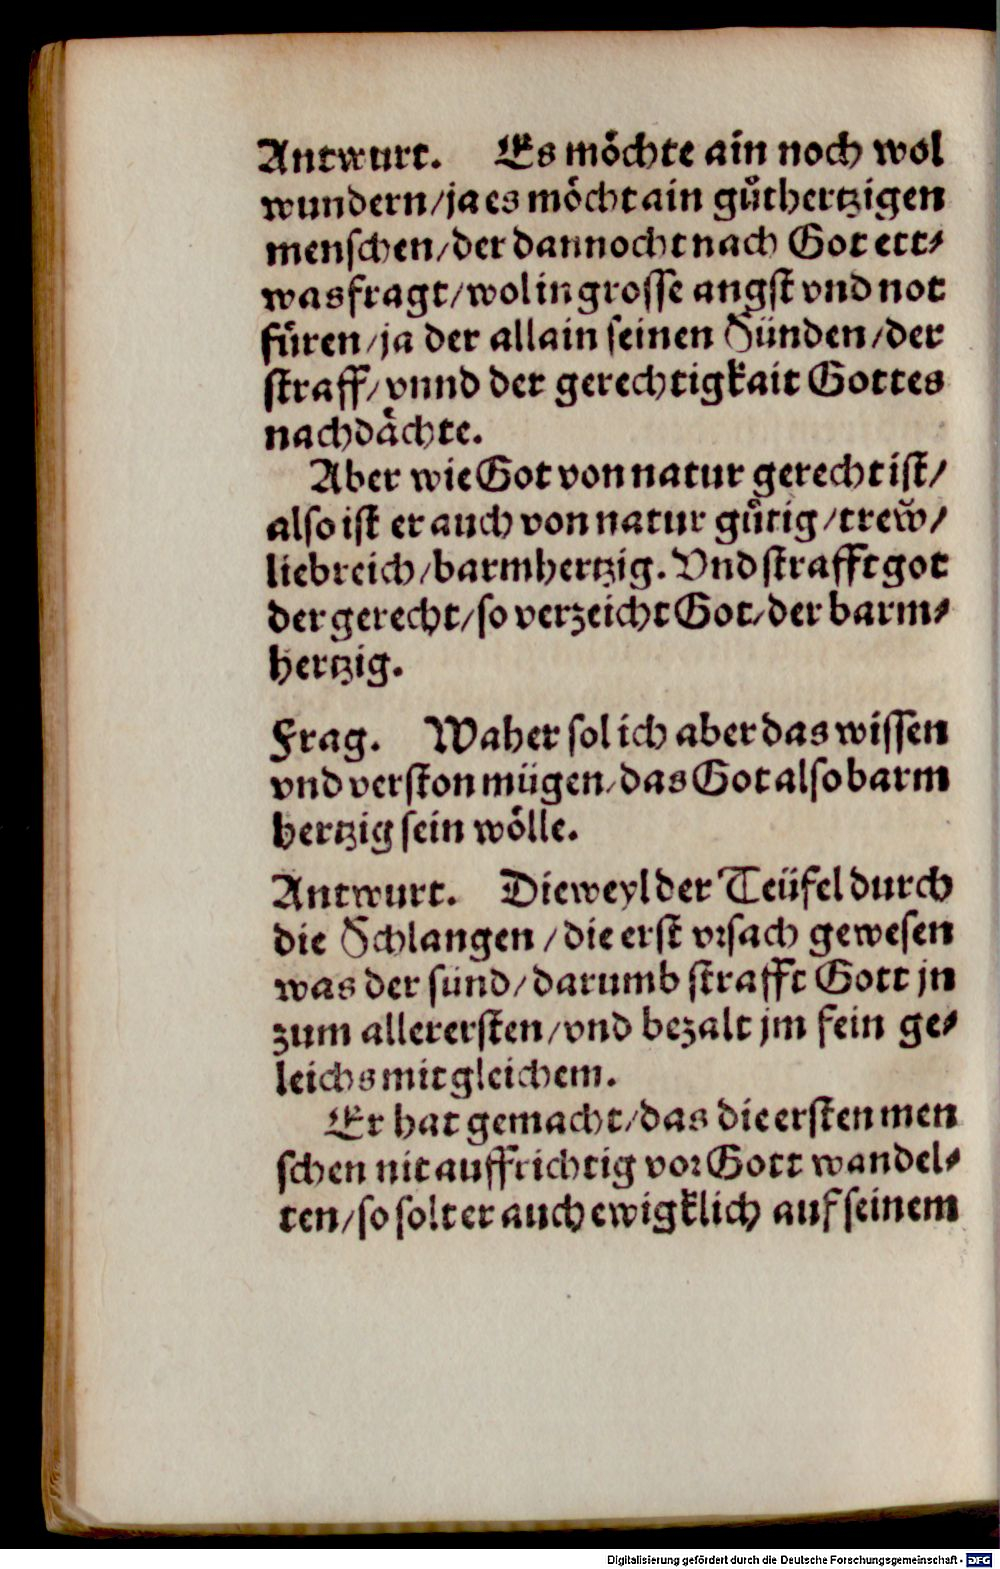 Antwurt. Es moͤchte ain noch wol
wundern/ja es moͤcht ain guͦthertzigen
menschen/der dannocht nach Got ett⸗
was fragt/wol in grosse angst vnd not
fuͤren/ja der allain seinen Sünden/der
straff/vnnd der gerechtigkait Gottes
nachdaͤchte.
Aber wie Got von natur gerecht ist/
also ist er auch von natur guͤtig/trew̆/
liebreich/barmhertzig. Vnd strafft got
der gerecht/so verzeicht Got/der barm⸗
hertzig.
Frag. Waher sol ich aber das wissen
vnd verston mügen/das Got also barm
hertzig sein woͤlle.
Antwurt. Dieweyl der Teüfel durch
die Schlangen/die erst vrsach gewesen
was der sünd/darumb strafft Gott jn
zum allerersten/vnd bezalt jm fein ge⸗
leichs mit gleichem.
Er hat gemacht/das die ersten men
schen nit auffrichtig vor Gott wandel⸗
ten/so solt er auch ewigklich auf seinem
Digitalisierung gefördert durch die Deutsche Forschungsgemeinschaft - DFG